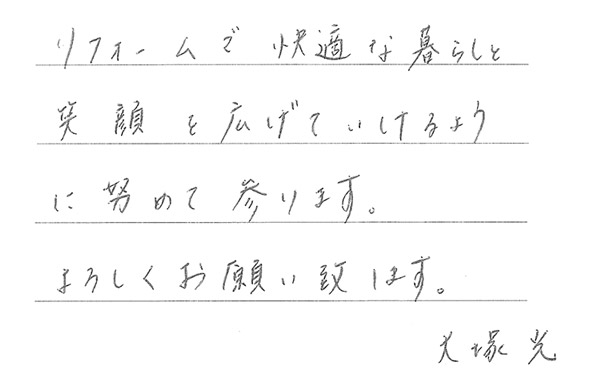 リフォームで快適な暮らしと
笑顔を広げていけるよう
に努めて参ります。
よろしくお願い致します。
大塚光